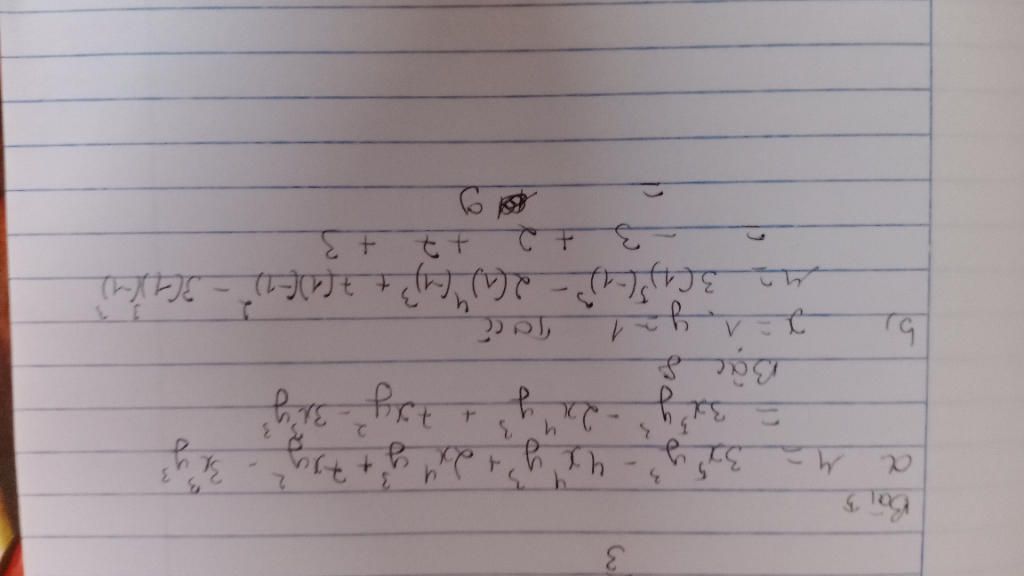 3
Bài 3
a M = 3x⁵y³ - 4x⁴y³ + 2x⁴y³ + 7xy² - 3x³y³
= 3x⁵y³ - 2x⁴y³ + 7xy² - 3x³y³
Bậc 8
b) x = 1 y = -1 Ta có
M = 3(1)⁵(-1)³ - 2(1)⁴(-1)³ + 7(1)(-1)² - 3(1)³(-1)³
= - 3 + 2 + 7 + 3
= 9